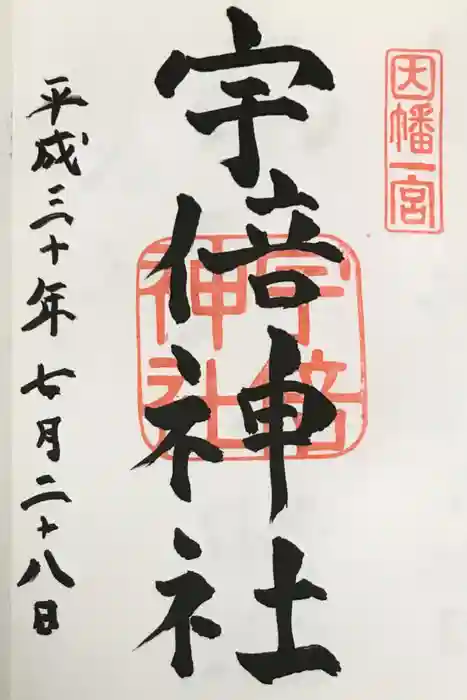 因幡一宮
宇倍神社
宇倍神社
平成三十年七月二十八日